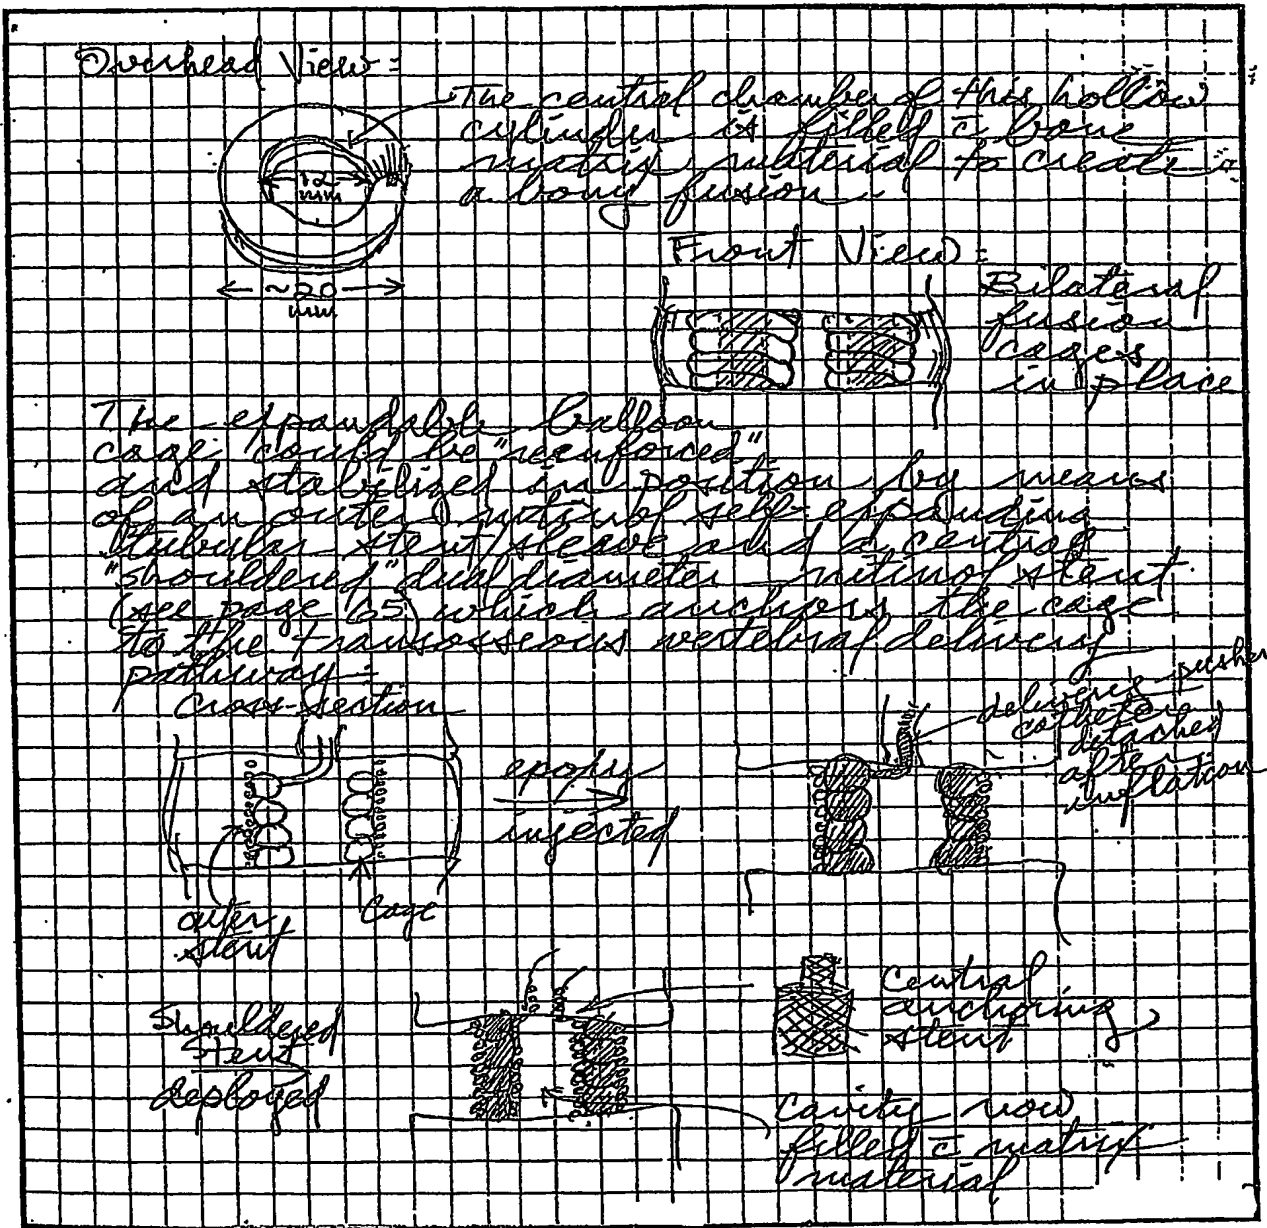 Overhead View:
The central chamber of this hollow
cylinder is filled c̄ bone
matrix material to create
a bony fusion.
12
mm
~20
mm
Front View:
Bilateral
fusion
cages
in place
The expandable balloon
cage could be "reenforced"
and stabilized in position by means
of an outer nitinol self-expanding
tubular stent/sleeve and a central
"shouldered" dual diameter nitinol stent
(see page 65) which anchors the cage
to the transosseous vertebral delivery
pathway:
Cross-section
outer
stent
Cage
epoxy
injected
delivery pusher
catheter
detached
after
inflation
Shouldered
stent
deployed
central
anchoring
stent
cavity now
filled c̄ matrix
material